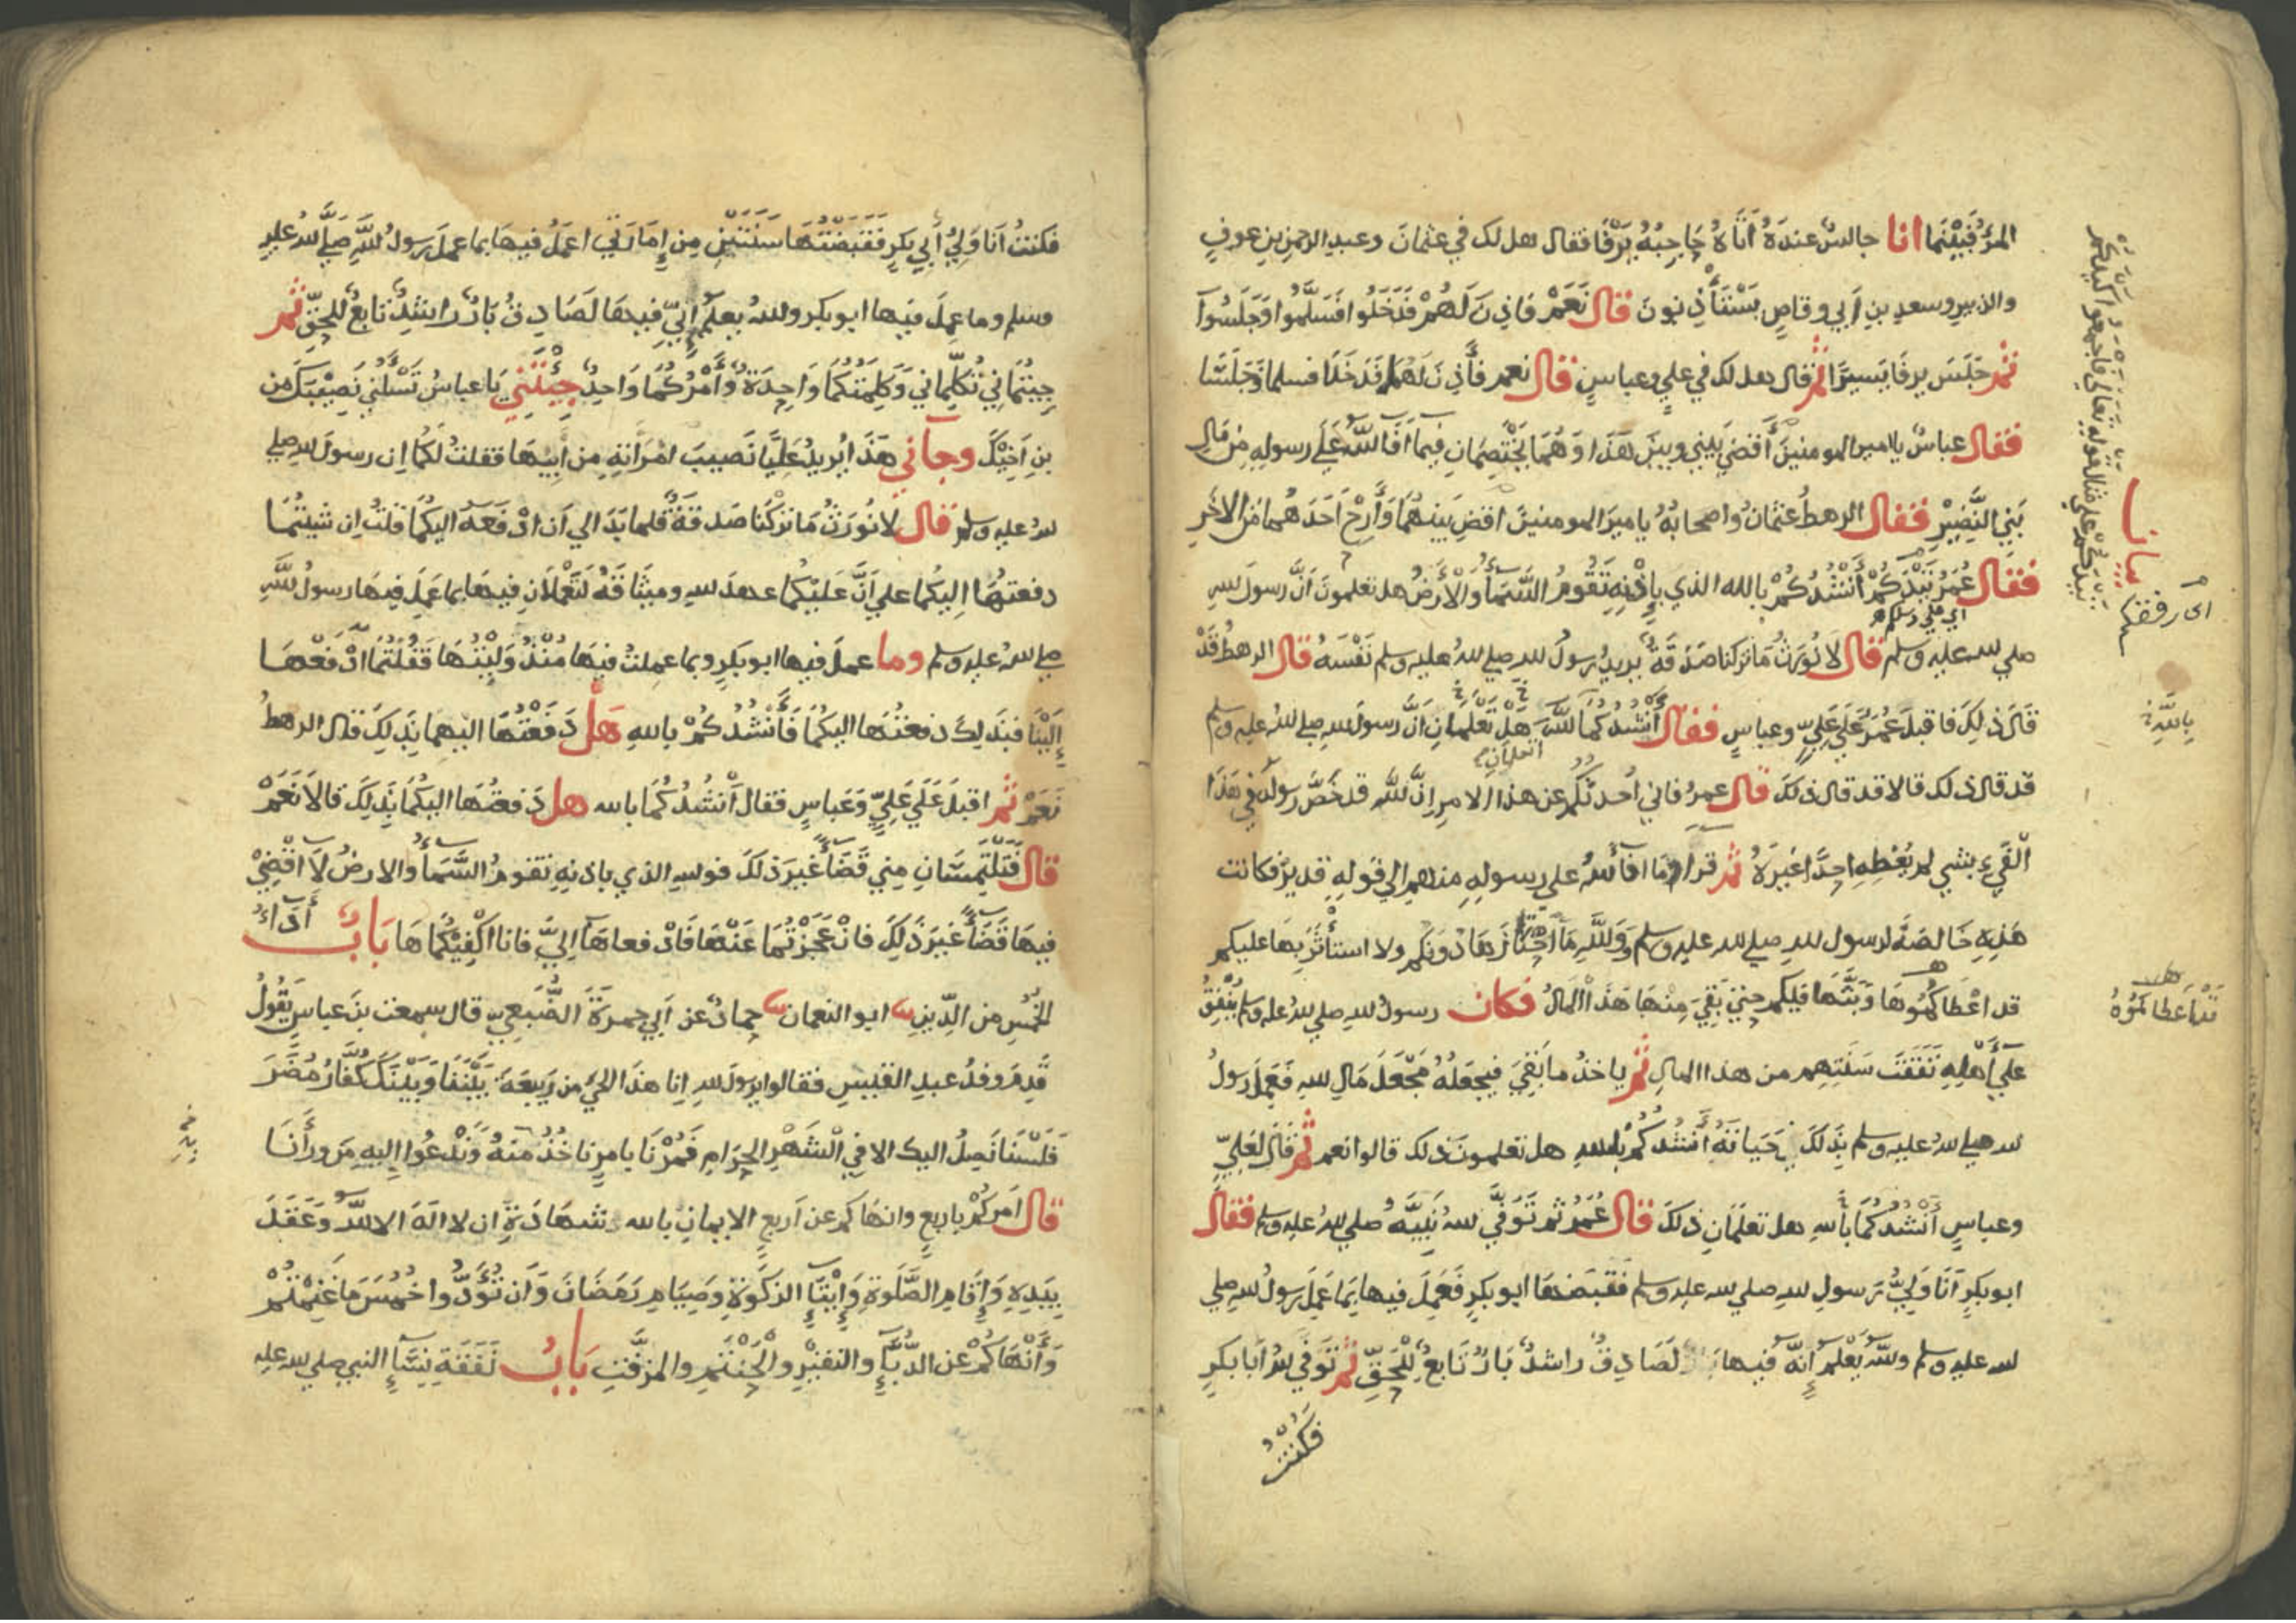 المرؤ فبينما انا جالس عنده اتاه حاجبه يرفا فقال هل لك في عثمان وعبد الرحمن بن عوف
والزبير وسعد بن أبي وقاص يستأذنون قال نعم فاذن لهم فدخلوا فسلموا وجلسوا
ثم جلس يرفا يسيرا ثم قال هل لك في علي وعباس قال نعم فأذن لهما فدخلا فسلما وجلسا
فقال عباس يا امير المومنين أقضي بيني وبين هذا وهما يختصمان فيما افا الله على رسوله من مال
بني النضير فقال الرهط عثمان واصحابه يا مير المومنين اقض بينهما وأرح احدهما من الاخر
فقال عمر تيدكم أنشدكم بالله الذي بإذنه تقوم السمآء والأرض هل تعلمون أن رسول لله
صلي لله عليه وسلم قال لا نورث ما تركنا صدقة يريد رسول لله صلي لله عليه وسلم نفسه قال الرهط قد
قال ذلك فاقبل عمر علي علي وعباس فقال أنشدكما لله هل تعلمان أن رسول لله صلي لله عليه وسلم
قد قال ذلك قالا قد قال ذلك قال عمر فاني أحدثكم عن هذا الامر إن لله قد خص رسوله في هذا
الفيء بشي لم يعطه احدا غيره ثم قرا وما افآ لله علي رسوله منهم الي قوله قدير فكانت
هذه خالصة لرسول لله صلي لله عليه وسلم ووالله ما احتازها دونكم ولا استأثر بها عليكم
قد اعطاكموها وبثها فيكم حتي بقي منها هذا المال فكان رسول لله صلي لله عليه وسلم ينفق
علي أهله نفقت سنتهم من هذا المال ثم ياخذ ما بقي فيجعله مجعل مال لله فعمل رسول
لله صلي لله عليه وسلم بذلك حياته أنشدكم بالله هل تعلمون ذلك قالوا نعم ثم قال لعلي
وعباس أنشدكما بألله هل تعلمان ذلك قال عمر ثم توفي لله نبيه صلي لله عليه وسلم فقال
ابو بكر أنا ولي رسول لله صلي لله عليه وسلم فقبضها ابو بكر فعمل فيها بما عمل رسول لله صلي
لله عليه وسلم ولله يعلم إنه فيها لصادق راشد بار تابع للحق ثم توفي لله أبا بكر
فكنت
بيانا
اى رفقا
بالله
قد اعطاكموه
فكنت أنا ولي أبي بكر فقبضتها سنتين من إمارتي اعمل فيها بما عمل رسول لله صلى لله عليه
وسلم وما عمل فيها ابو بكر ولله يعلم إني فيها لصادق بار راشد تابع للحق ثم
جيتماني تكلماني وكلمتكما واحدة وأمركما واحد جئتني يا عباس تسألني نصيبك من
بن اخيك وجآني هذا يريد عليا نصيب امراته من أبيها فقلت لكما إن رسول لله صلي
لله عليه وسلم قال لا نورث ما تركنا صدقة فلما بدا لي أن ادفعه اليكما قلت إن شيتما
دفعتها اليكما علي أن عليكما عهد لله وميثاقه لتعملان فيها بما عمل فيها رسول لله
صلي لله عليه وسلم وما عمل فيها ابو بكر وبما عملت فيها منذ وليتها فقلتما ادفعها
إلينا فبذلك دفعتها اليكما فأنشدكم بالله هل دفعتها اليهما بذلك قال الرهط
نعم ثم اقبل علي علي وعباس فقال أنشدكما بالله هل دفعتها اليكما بذلك قالا نعم
قال فتلتمسان مني قضآء غير ذلك فولله الذي باذنه تقوم السمآء والارض لا اقضي
فيها قضآء غير ذلك فان عجزتما عنها فادفعاهآ إلي فانا اكفيكماها باب أدآء
الخمس من الدين ابو النعمان حماد عن أبي جمرة الضبعي قال سمعت بن عباس يقول
قدم وفد عبد القيس فقالوا يرسول لله إنا هذا الحي من ربيعة بيننا وبينك كفار مضر
فلسنا نصل اليك الا في الشهر الحرام فمرنا بامر ناخذ منه وندعوا إليه من ورأنا
قال امركم باربع وانهاكم عن أربع الايمان بالله شهادة إن لا اله الا الله وعقد
بيده وإقام الصلوة وإيتآء الزكوة وصيام رمضان وأن تؤدوا خمس ما غنمتم
وأنهاكم عن الدبآء والنقير والحنتم والمزفت باب نفقة نسآء النبي صلي لله عليه